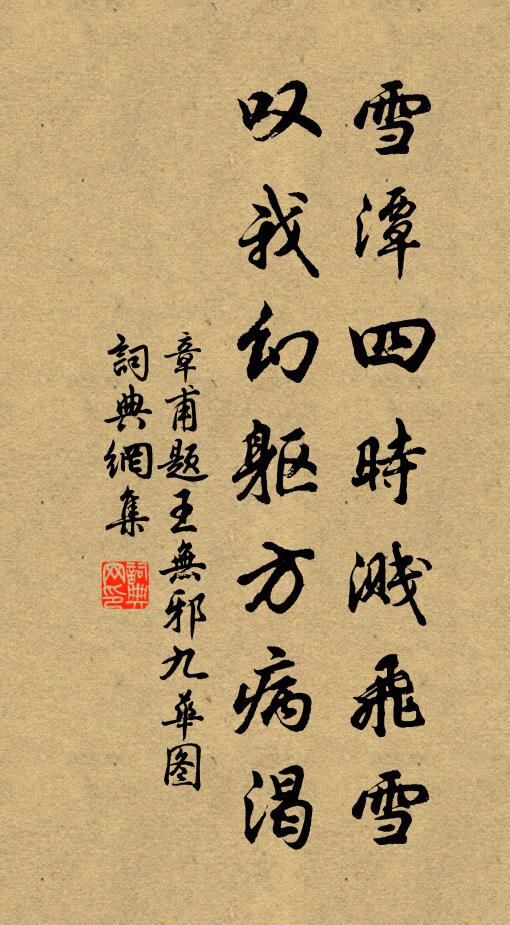 雪潭四時濺飛雪
叹我幻軀方病渴
章甫题王無邪九華图
詞典網集
詞典網印